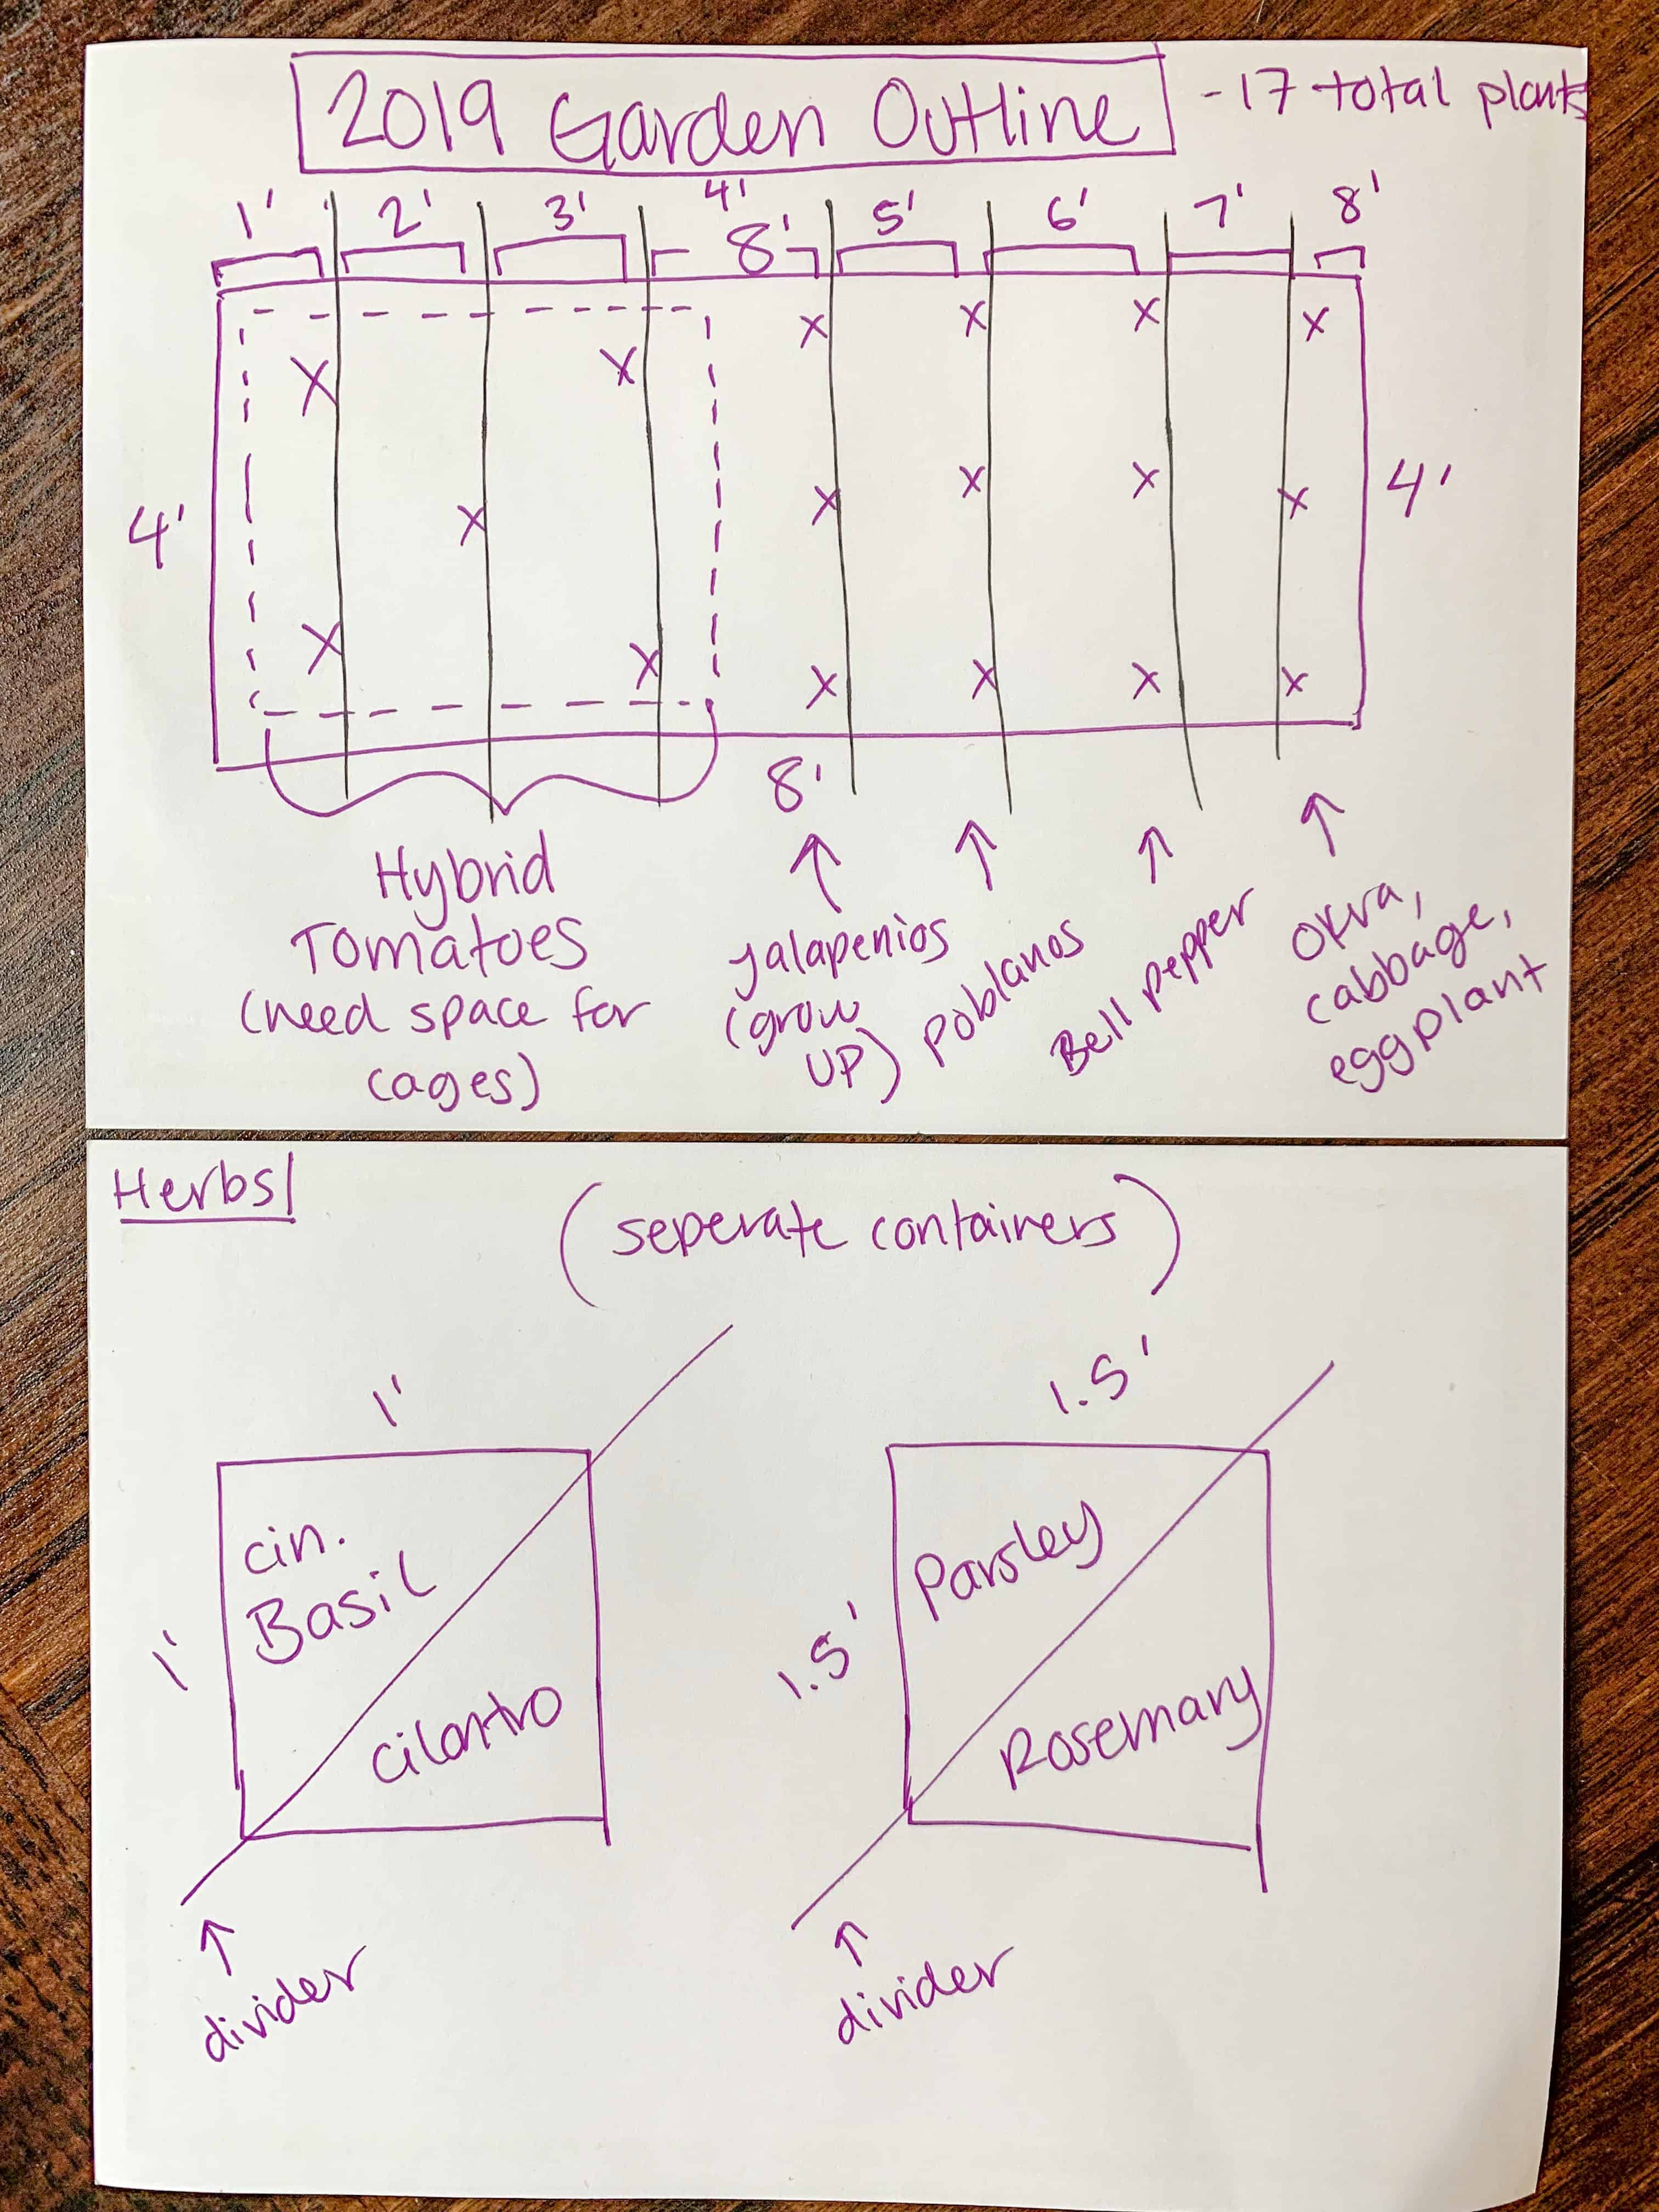 2019 Garden Outline
-17 total plants
1' 2' 3' 4' 5' 6' 7' 8'
8'
x x x x
X X
x x x x
x
4' 4'
X X
x x x x
8'
Hybrid
Tomatoes
(need space for
cages)
jalapenios
(grow
UP)
poblanos
Bell pepper
okra,
cabbage,
eggplant
Herbs
(seperate containers)
1'
1'
cin.
Basil
cilantro
divider
1.5'
1.5'
Parsley
Rosemary
divider